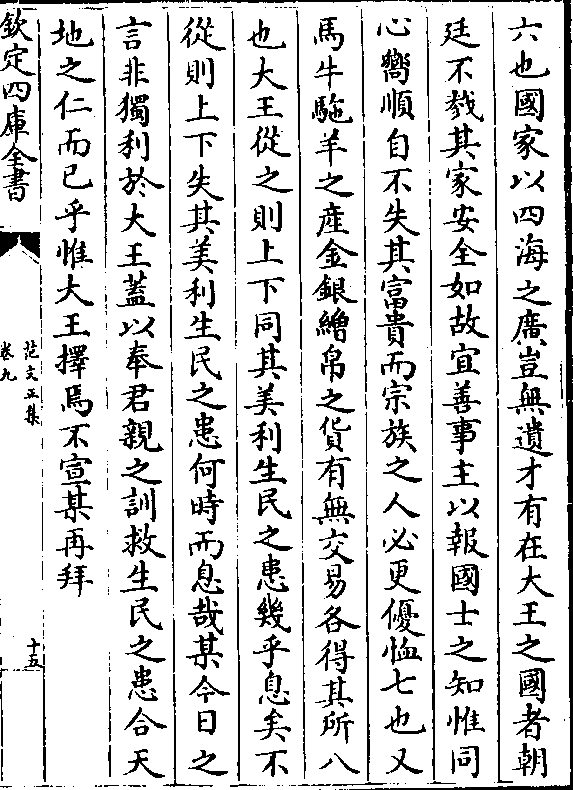 六也國家以四海之廣豈無遺才有在大王之國者朝
廷不戮其家安全如故宜善事主以報國士之知惟同
心嚮順自不失其富貴而宗族之人必更優恤七也又
馬牛駞羊之産金銀繒帛之貨有無交易各得其所八
也大王從之則上下同其美利生民之患幾乎息矣不
從則上下失其美利生民之患何時而息哉某今日之
言非獨利於大王蓋以奉君親之訓救生民之患合天
地之仁而已乎惟大王擇焉不宣某再拜
欽定四庫全書
范文正集
卷九
十五